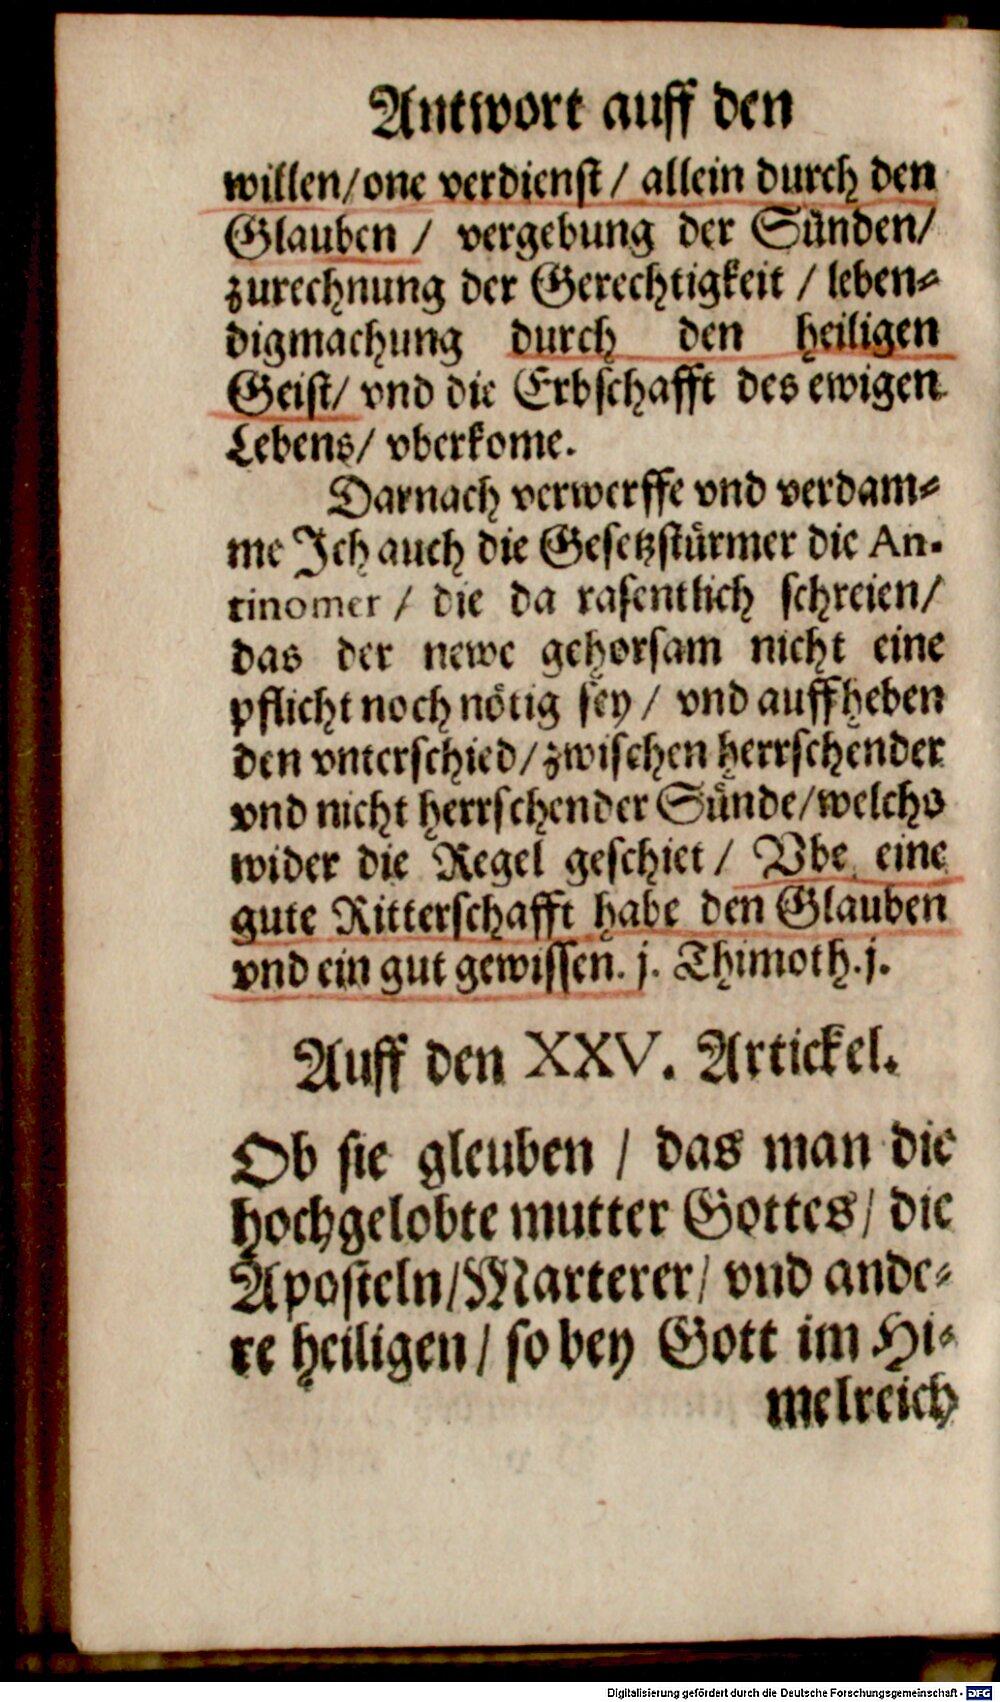 Antwort auff den
willen/one verdienst / allein durch den
Glauben / vergebung der Sünden/
zurechnung der Gerechtigkeit / leben⸗
digmachung durch den heiligen
Geist/ vnd die Erbschafft des ewigen
Lebens/ vberkome.
Darnach verwerffe vnd verdam⸗
me Ich auch die Gesetzstürmer die An-
tinomer / die da rasentlich schreien/
das der newe gehorsam nicht eine
pflicht noch nötig sey / vnd auffheben
den vnterschied/zwischen herrschender
vnd nicht herrschender Sünde/welchs
wider die Regel geschiet / Vbe eine
gute Ritterschafft habe den Glauben
vnd ein gut gewissen. j. Thimoth.j.
Auff den XXV. Artickel.
Ob sie gleuben / das man die
hochgelobte mutter Gottes/ die
Aposteln/Marterer/ vnd ande⸗
re heiligen/ so bey Gott im Hi⸗
melreich
Digitalisierung gefördert durch die Deutsche Forschungsgemeinschaft - DFG